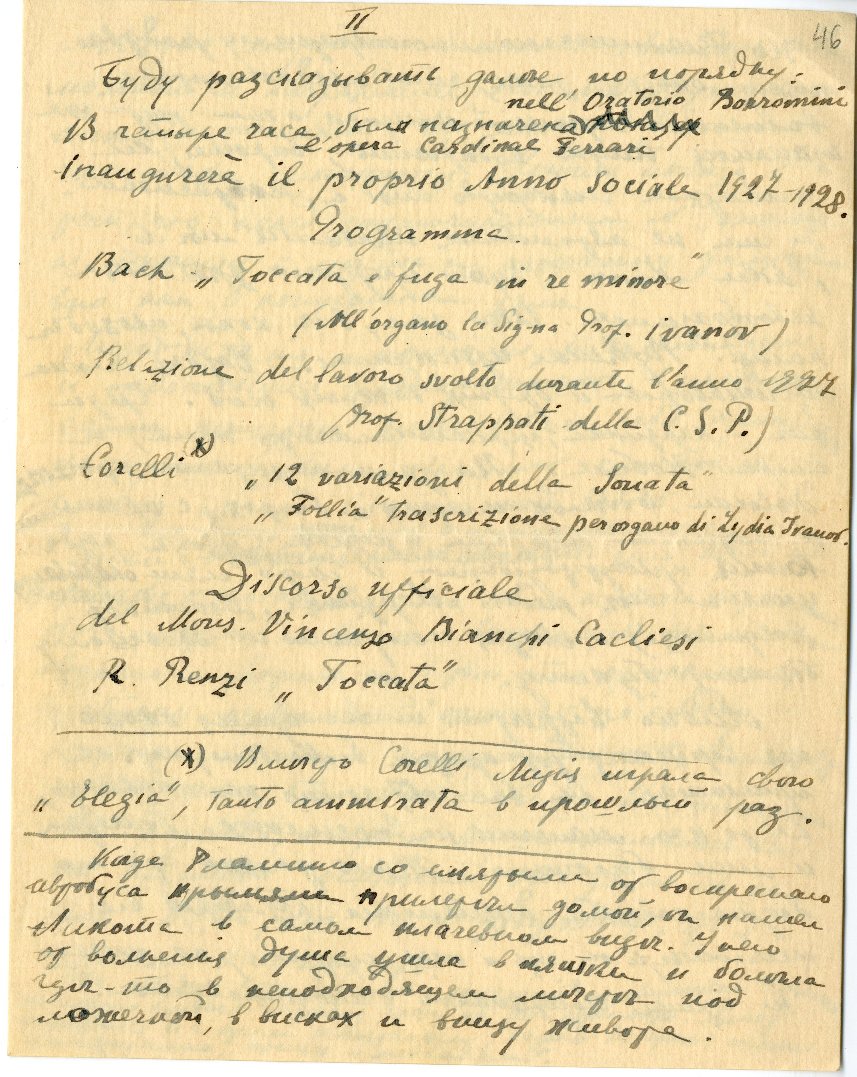 II
46
Буду разсказывать далѣе по порядку.
nell' Oratorio Borromini
В четыре часа была назначена
l'opera Cardinal Ferrari
inaugurerà il proprio Anno Sociale 1927-1928.
Programma.
Bach „Toccata e fuga in re minore"
(All'organo la Sig-na Prof. Ivanov)
Relazione del lavoro svolto durante l'anno 1927
Prof. Strappati della C. S. P.)
Corelli (x) „12 variazioni della Sonata"
„Follia" trascrizione per organo di Lydia Ivanov.
Discorso ufficiale
del Mons. Vincenzo Bianchi Cagliesi
R. Renzi „Toccata"
(x) Вмѣсто Corelli Лидія играла свою
„Elegia", tanto ammirata в прошлый раз.
Когда Фламинго со от воскреснаго
автобуса прилетѣл домой, он нашел
Ликота в самом плачевном видѣ. У него
от волненія душа ушла в пятки и болѣла
гдѣ-то в неподходящем мѣстѣ под
ложечкой, в висках и внизу живота.